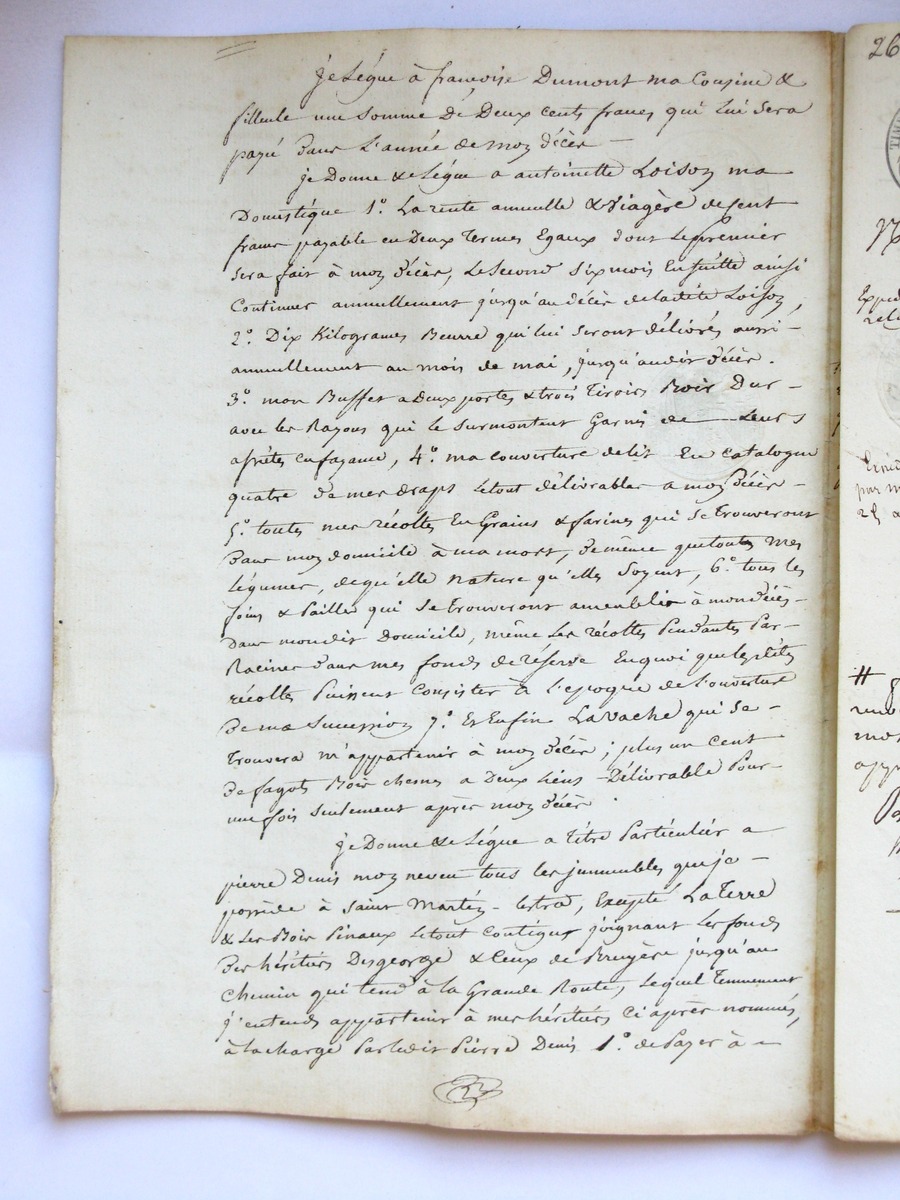 je Légue à françoise Dumont ma Cousine &
filleule une Somme De Deux cents francs qui Lui Sera
payé dans L'année de mon décès —
je Donne & Légue a antoinette Loison ma
Domestique 1.° La rente annuelle & Viagère de Cent
francs payable en Deux Termes Egaux dont Le premier
Sera fait à mon décès, Le Second Six mois Ensuitte ainsi
Continuer annuellement jusqu'au décès de ladite Loison,
2.° Dix Kilogrames Beurre qui lui Seront délivrés aussi —
annuellement au mois de mai, jusqu'audit décès.
3.° mon Buffet a Deux portes & trois Tiroirs Bois Dur —
avec les Rayons qui le Surmontent Garni de — Leurs
afiètes en fayance, 4.° ma couverture de lit En Catalogne
quatre de mes draps Le tout délivrables a mon décès —
5.° toutes mes récoltes En Grains & farines qui Se trouveront
dans mon domicile à ma mort, de même que toutes mes
Légumes, de qu'elle nature qu'elles Soyent, 6.° tous les
foins & Pailles qui Se trouveront ameublis à mon décès —
dans mondit Domicile, même Les récoltes Pendantes Par —
Racines dans mes fonds de réserve En quoi que lesdites
récoltes Puissent Consister à L'epoque de L'ouverture
de ma Succession 7.° Et Enfin La Vache qui Se —
trouvera m'appartenir à mon décès ; plus un Cent
de fagots Bois chesnes a Deux Liens Délivrable Pour —
une fois Seulement après mon décès .
je Donne & Légue a titre Particulier a
pierre Denis mon neveu tous les immeubles que je —
possède à Saint Martin - Lestra, Excepté La Terre
& Les Bois Pinaux Le tout Contigus joignant Les fonds
des héritiers Desgeorge & Ceux de Bruyère jusqu'au
Chemin qui tend à la Grande Route, Lequel Tennement
j'entends appartenir à mes héritiers Ci après nommés,
à la charge Par ledit Pierre Denis 1.° de Payer à —
26